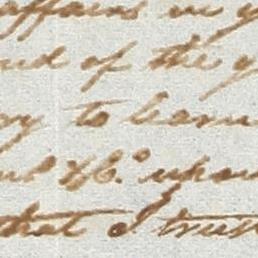 affairs in y
nd of the y
to learn
&c. upon
that I trust